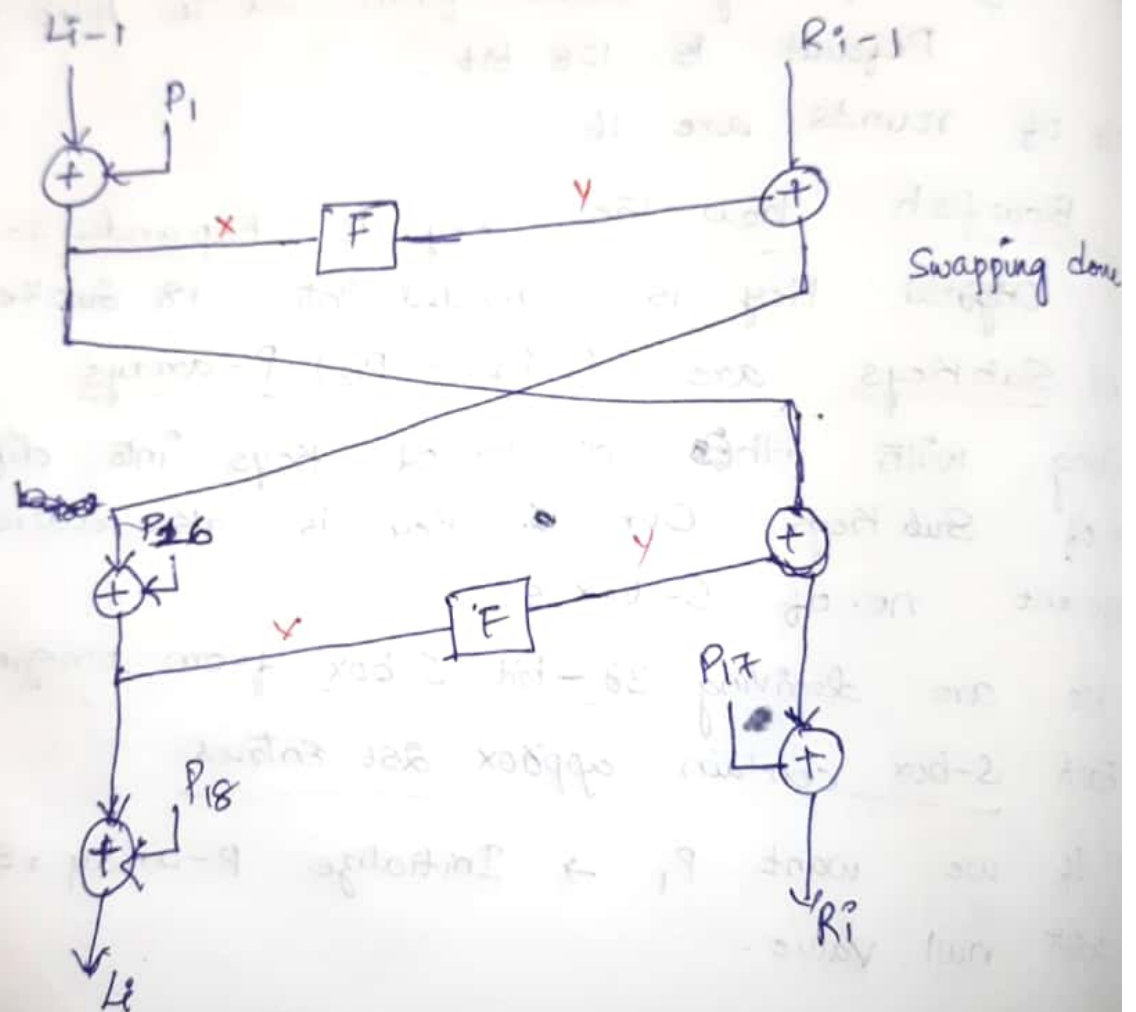 Li-1
Ri-1
P1
+
+
x
F
y
Swapping done
P16
+
+
x
F
y
P17
+
P18
+
Ri
Li